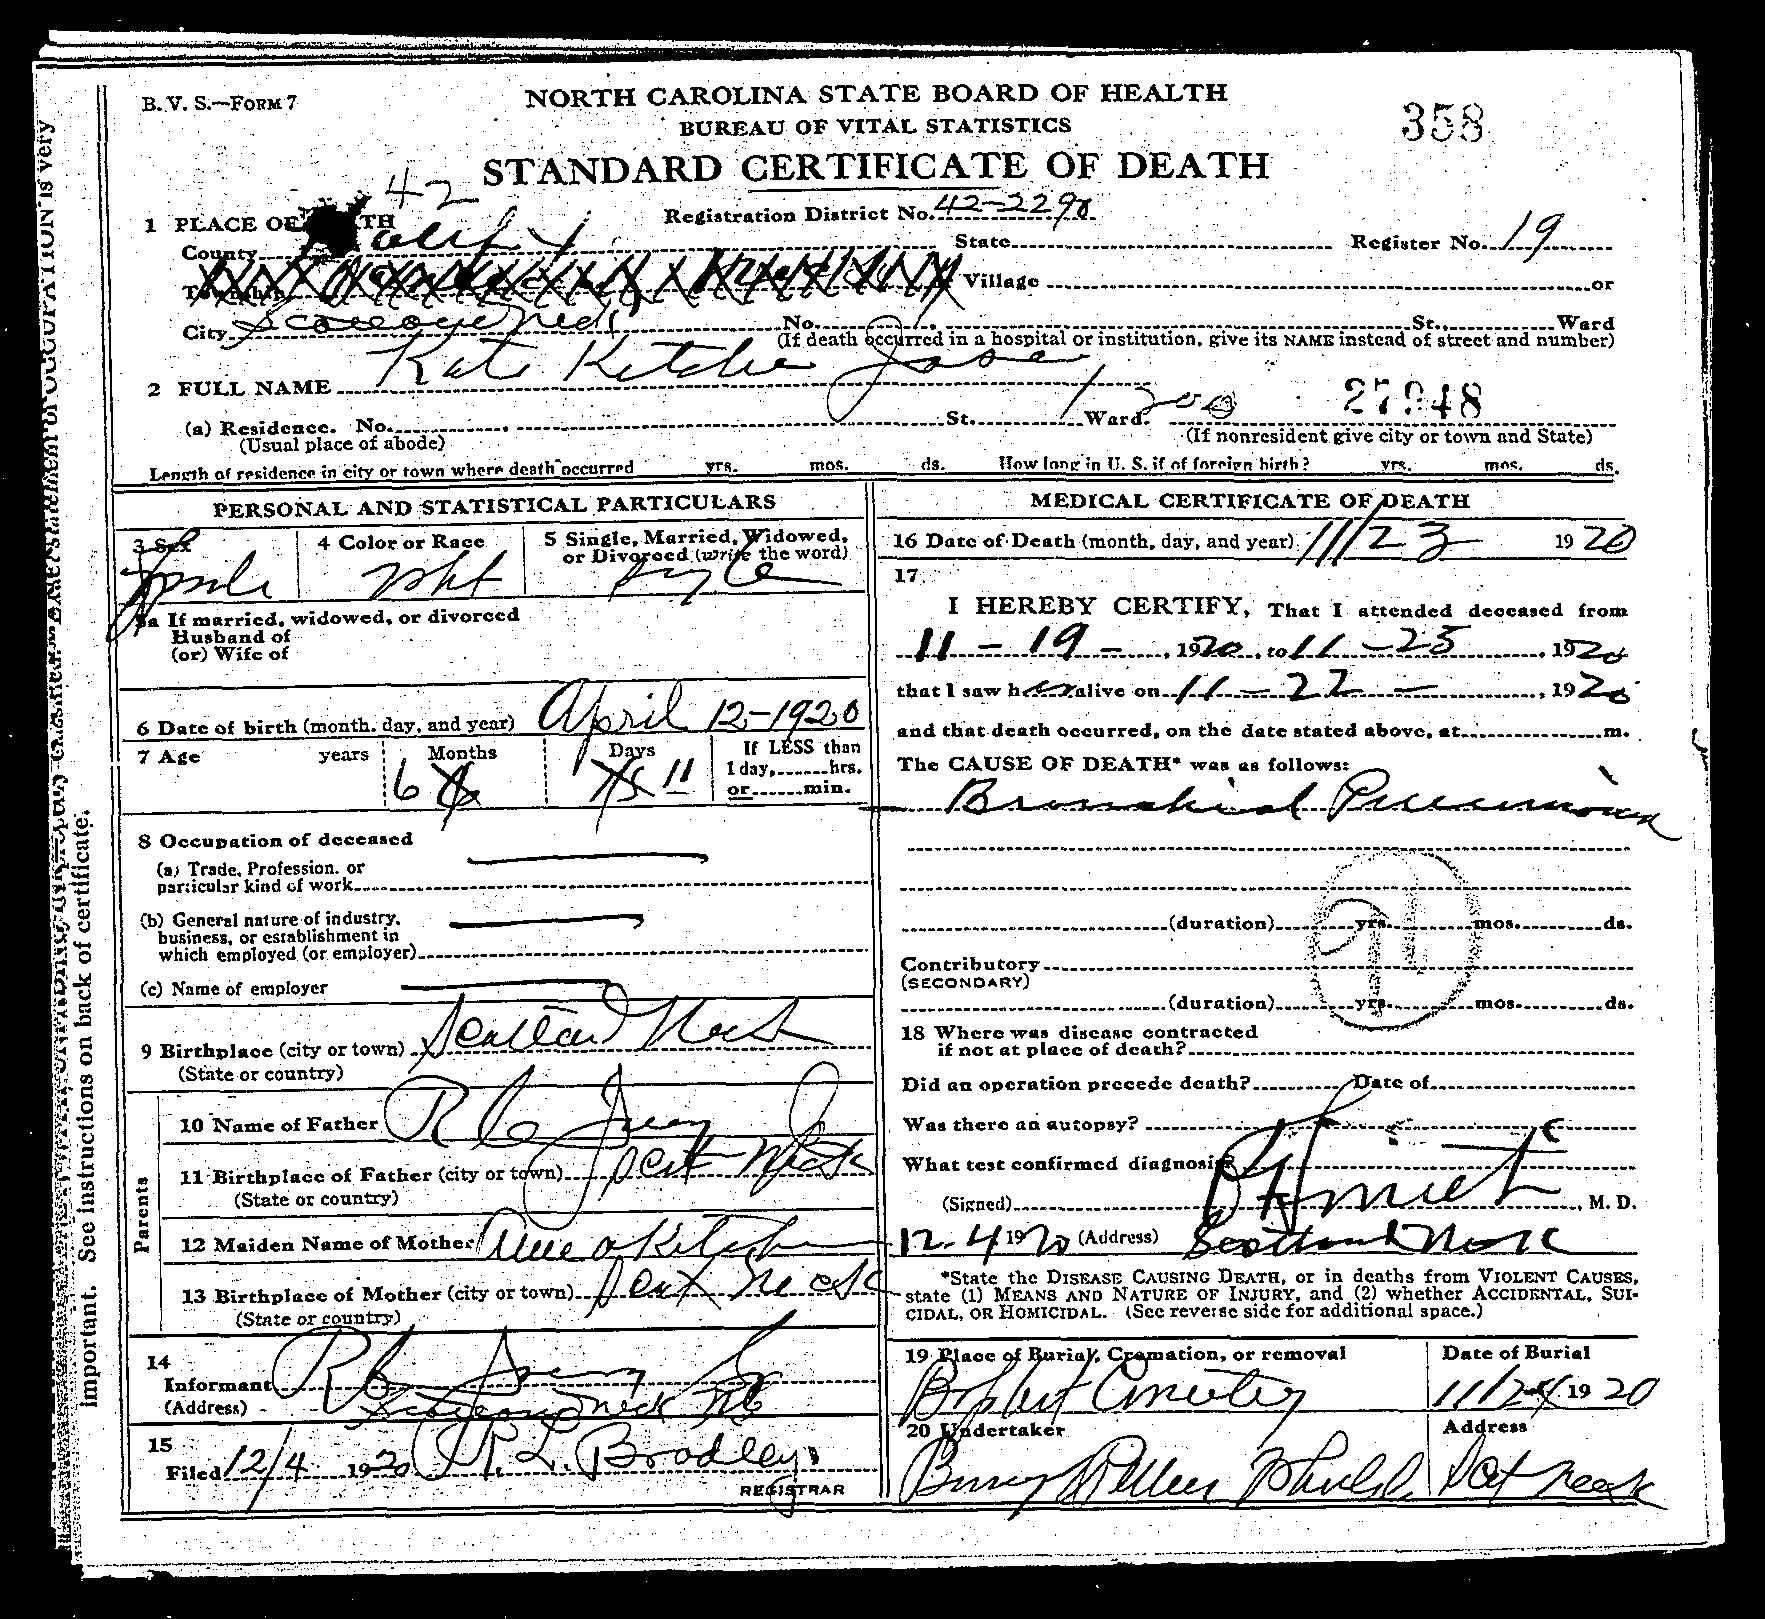 B. V. S.—FORM 7
NORTH CAROLINA STATE BOARD OF HEALTH
BUREAU OF VITAL STATISTICS
358
STANDARD CERTIFICATE OF DEATH
42
1 PLACE OF
Registration District No. 42-229
County
State
Register No. 19
Township
Village
or
City
No.
St.,
Ward
(If death occurred in a hospital or institution, give its NAME instead of street and number)
2 FULL NAME Kate
27948
(a) Residence. No.
St.
Ward.
(Usual place of abode)
(If nonresident give city or town and State)
Length of residence in city or town where death occurred yrs. mos. ds. How long in U. S. if of foreign birth? yrs. mos. ds.
PERSONAL AND STATISTICAL PARTICULARS
3 Sex
4 Color or Race
5 Single, Married, Widowed,
or Divorced (write the word)
5a If married, widowed, or divorced
Husband of
(or) Wife of
6 Date of birth (month, day, and year) April 12-1920
7 Age years Months Days If LESS than
1 day, hrs.
6 11
or min.
8 Occupation of deceased
(a) Trade, Profession, or
particular kind of work
(b) General nature of industry,
business, or establishment in
which employed (or employer)
(c) Name of employer
9 Birthplace (city or town) Scotland Neck
(State or country)
Parents
10 Name of Father
11 Birthplace of Father (city or town) Scot Neck
(State or country)
12 Maiden Name of Mother
13 Birthplace of Mother (city or town) Scot Neck
(State or country)
14
Informant
(Address) Scotland Neck NC
15
Filed 12/4 1920 L. Bradley
REGISTRAR
MEDICAL CERTIFICATE OF DEATH
16 Date of Death (month, day, and year) 11/23 1920
17
I HEREBY CERTIFY, That I attended deceased from
11-19-, 1920, to 11-23, 1920
that I saw her alive on 11-22-, 1920
and that death occurred, on the date stated above, at m.
The CAUSE OF DEATH* was as follows:
Bronchial Pneumonia
(duration) yrs. mos. ds.
Contributory
(SECONDARY)
(duration) yrs. mos. ds.
18 Where was disease contracted
if not at place of death?
Did an operation precede death? Date of
Was there an autopsy?
What test confirmed diagnosis?
(Signed) Smith, M. D.
12-4 1920 (Address) Scotland Neck
*State the DISEASE CAUSING DEATH, or in deaths from VIOLENT CAUSES,
state (1) MEANS AND NATURE OF INJURY, and (2) whether ACCIDENTAL, SUI-
CIDAL, OR HOMICIDAL. (See reverse side for additional space.)
19 Place of Burial, Cremation, or removal
Date of Burial
Baptist Cemetery
11/24 1920
20 Undertaker
Address
Scot Neck
important. See instructions on back of certificate.